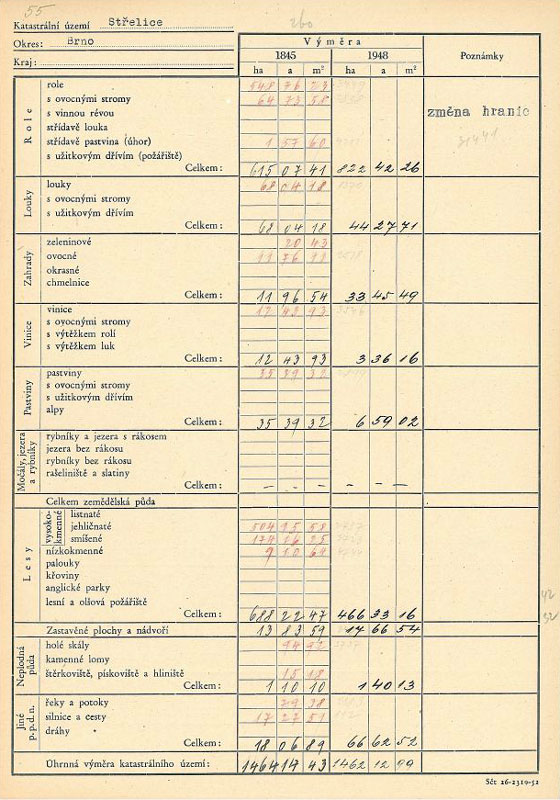 55
Katastrální území Střelice
Okres: Brno
Kraj:
Výměra
Poznámky
1845 1948
ha a m² ha a m²
Role
role 548 76 23
s ovocnými stromy 64 73 58
s vinnou révou
střídavě louka
střídavě pastvina (úhor) 1 57 60
s užitkovým dřívím (požářiště)
Celkem: 615 07 41 822 42 26
změna hranic
Louky
louky 68 04 18
s ovocnými stromy
s užitkovým dřívím
Celkem: 68 04 18 44 27 71
Zahrady
zeleninové 20 43
ovocné 11 76 11
okrasné
chmelnice
Celkem: 11 96 54 33 45 49
Vinice
vinice 12 43 93
s ovocnými stromy
s výtěžkem rolí
s výtěžkem luk
Celkem: 12 43 93 3 36 16
Pastviny
pastviny 35 39 32
s ovocnými stromy
s užitkovým dřívím
alpy
Celkem: 35 39 32 6 59 02
Močály, jezera a rybníky
rybníky a jezera s rákosem
jezera bez rákosu
rybníky bez rákosu
rašeliniště a slatiny
Celkem: – – – – – –
Celkem zemědělská půda
Lesy
vysoko-
kmenné
listnaté
jehličnaté 504 95 58
smíšené 174 16 25
nízkokmenné 9 10 64
palouky
křoviny
anglické parky
lesní a olšová požářiště
Celkem: 688 22 47 466 33 16
Zastavěné plochy a nádvoří 13 83 59 17 66 54
Neplodná půda
holé skály 94 92
kamenné lomy
štěrkoviště, pískoviště a hliniště 15 18
Celkem: 1 10 10 1 40 13
Jiné p.p.d.n.
řeky a potoky 79 38
silnice a cesty 17 27 51
dráhy
Celkem: 18 06 89 66 62 52
Úhrnná výměra katastrálního území: 1464 14 43 1462 12 99
Sčt 26-2319-52